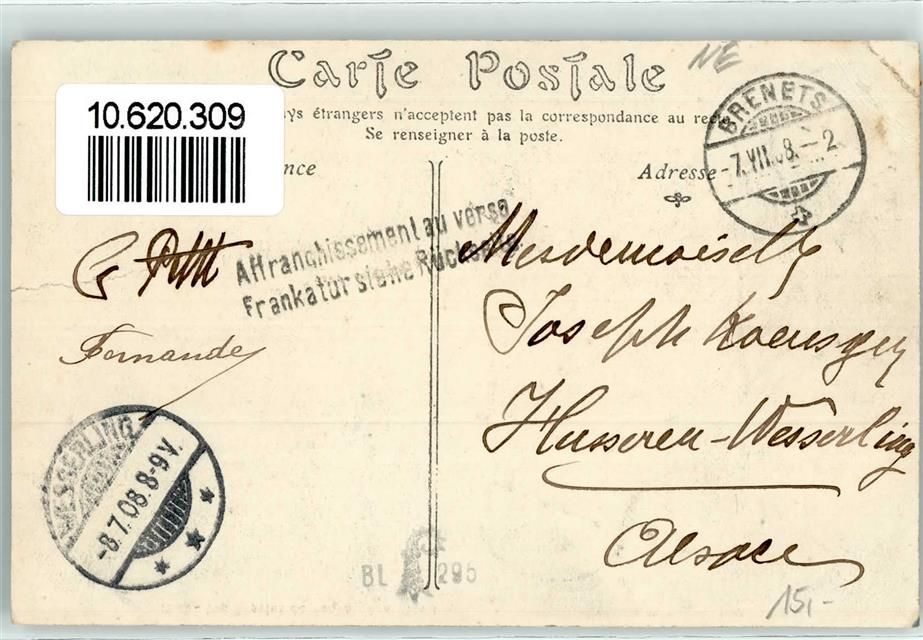 Carte Postale
NE
10.620.309
ys étrangers n'acceptent pas la correspondance au recto
Se renseigner à la poste.
nce
Adresse
BRENETS
-7.VII.08.-2
Affranchissement au verso
Frankatur siehe Rückseite.
Mesdemoiselle
Joseph
Husseren-Wesserling
Alsace
Fernande
WESSERLING
-8.7.08.8-9V.
BL 295
15,-